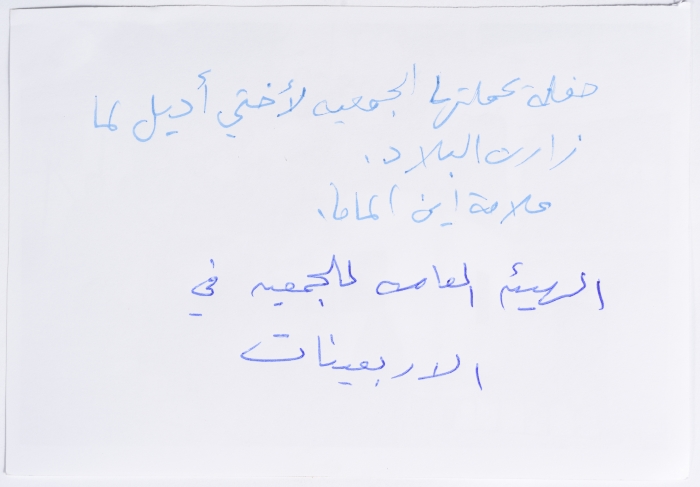 حفلة عملتها الجمعيه لأختي أديل لما
زارت البلاد.
علامة اين الماما.
الهيئه العامه للجمعيه في
الاربعينات